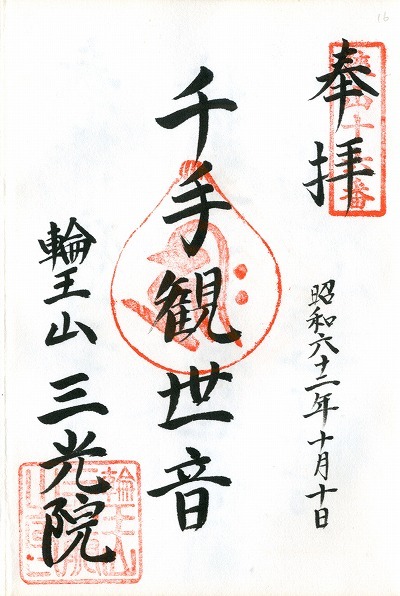 奉拝
昭和六十二年十月十日
千手観世音
輪王山 三光院
16